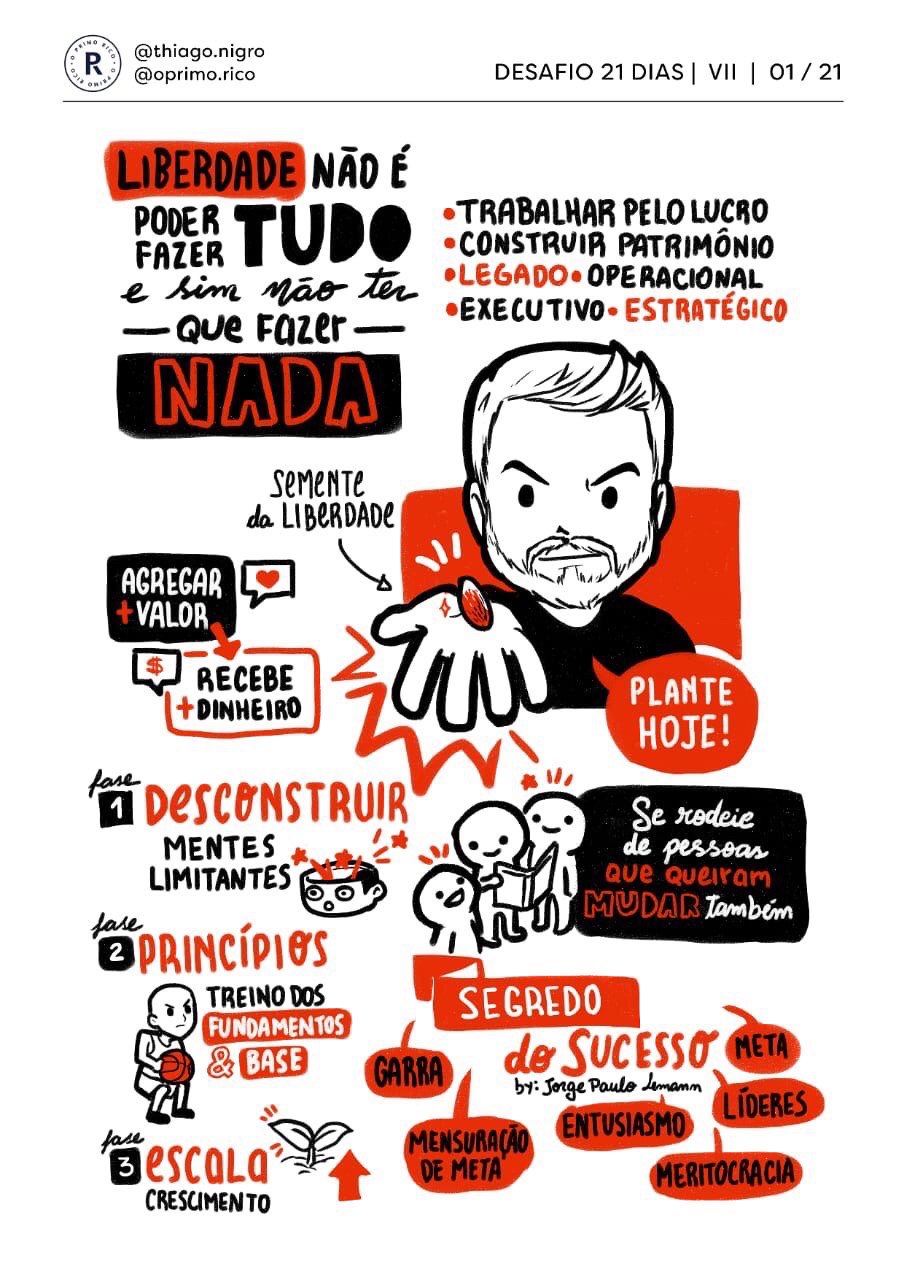 O PRIMO RICO • O PRIMO RICO •
R
@thiago.nigro
@oprimo.rico
DESAFIO 21 DIAS | VII | 01 / 21
LIBERDADE NÃO É
PODER
FAZER TUDO
e sim não ter
QUE FAZER
NADA
• TRABALHAR PELO LUCRO
• CONSTRUIR PATRIMÔNIO
• LEGADO • OPERACIONAL
• EXECUTIVO • ESTRATÉGICO
SEMENTE
da LIBERDADE
AGREGAR
+ VALOR
$
RECEBE
+ DINHEIRO
PLANTE
HOJE!
fase
1 DESCONSTRUIR
MENTES
LIMITANTES
Se rodeie
de pessoas
que queiram
MUDAR também
fase
2 PRINCÍPIOS
TREINO DOS
FUNDAMENTOS
& BASE
fase
3 escala
CRESCIMENTO
SEGREDO
do SUCESSO
by: Jorge Paulo Lemann
GARRA
META
LÍDERES
ENTUSIASMO
MENSURAÇÃO
DE META
MERITOCRACIA